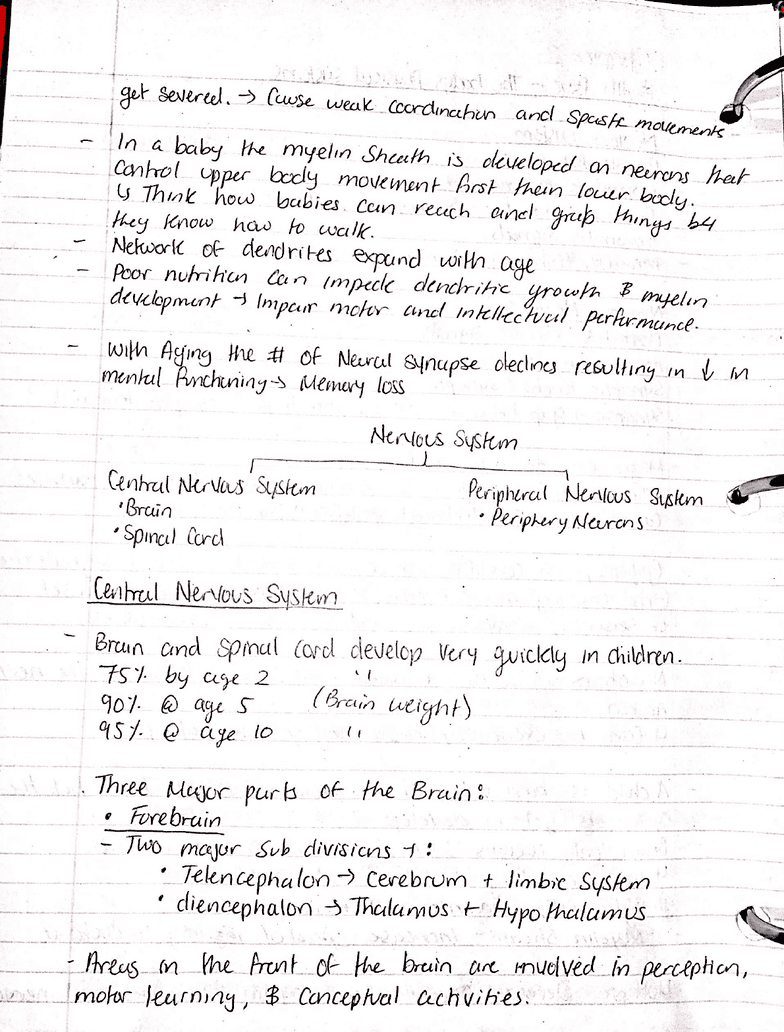 get severed. → Cause weak coordination and spastic movements
- In a baby the myelin sheath is developed on neurons that
control upper body movement first then lower body.
↳ Think how babies can reach and grab things b4
they know how to walk.
- Network of dendrites expand with age
- Poor nutrition can impede dendritic growth & myelin
development → Impair motor and intellectual performance.
- with Aging the # of Neural synapse declines resulting in ↓ in
mental functioning → Memory loss
Nervous System
Central Nervous System
• Brain
• Spinal Cord
Peripheral Nervous System
• Periphery Neurons
Central Nervous System
- Brain and spinal cord develop very quickly in children.
75% by age 2 "
90% @ age 5 (Brain weight)
95% @ age 10 "
. Three Major parts of the Brain:
• Forebrain
- Two major sub divisions →:
• Telencephalon → Cerebrum + limbic System
• diencephalon → Thalamus + Hypothalamus
- Areas on the front of the brain are involved in perception,
motor learning, & Conceptual activities.